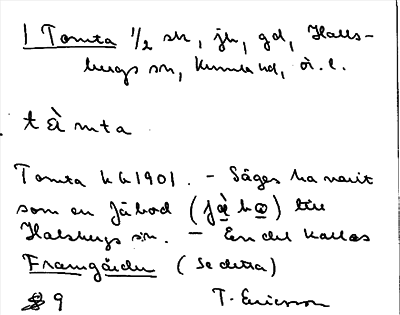 1 Tomta 1/2 sk, jk, gd, Halls-
bergs sn, Kumla hd, ör. l.
tà mta
Tomta kk 1901. - Säges ha varit
som en fäbod (fæ̀ bo) till
Halsbergs sn. - En del kallas
Framgården (Se detta)
9 T. Ericsson